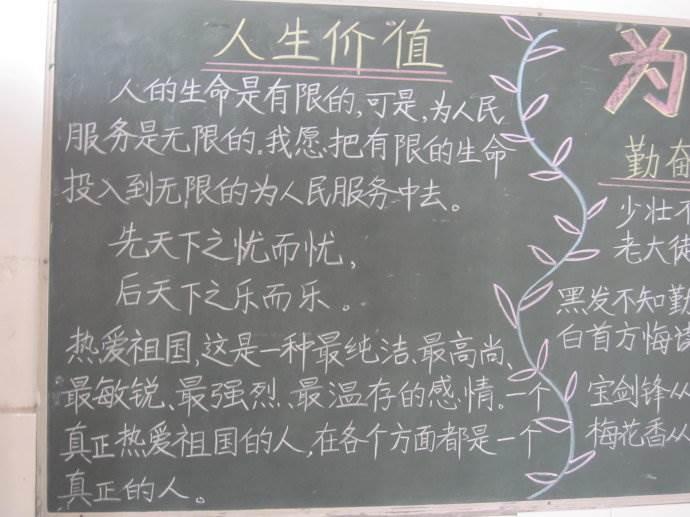 人生价值
人的生命是有限的,可是,为人民
服务是无限的.我愿把有限的生命
投入到无限的为人民服务中去。
先天下之忧而忧,
后天下之乐而乐。
热爱祖国,这是一种最纯洁、最高尚、
最敏锐、最强烈、最温存的感情。一个
真正热爱祖国的人,在各个方面都是一个
真正的人。
为
勤奋
少壮不
老大徒
黑发不知勤
白首方悔读
宝剑锋从
梅花香从